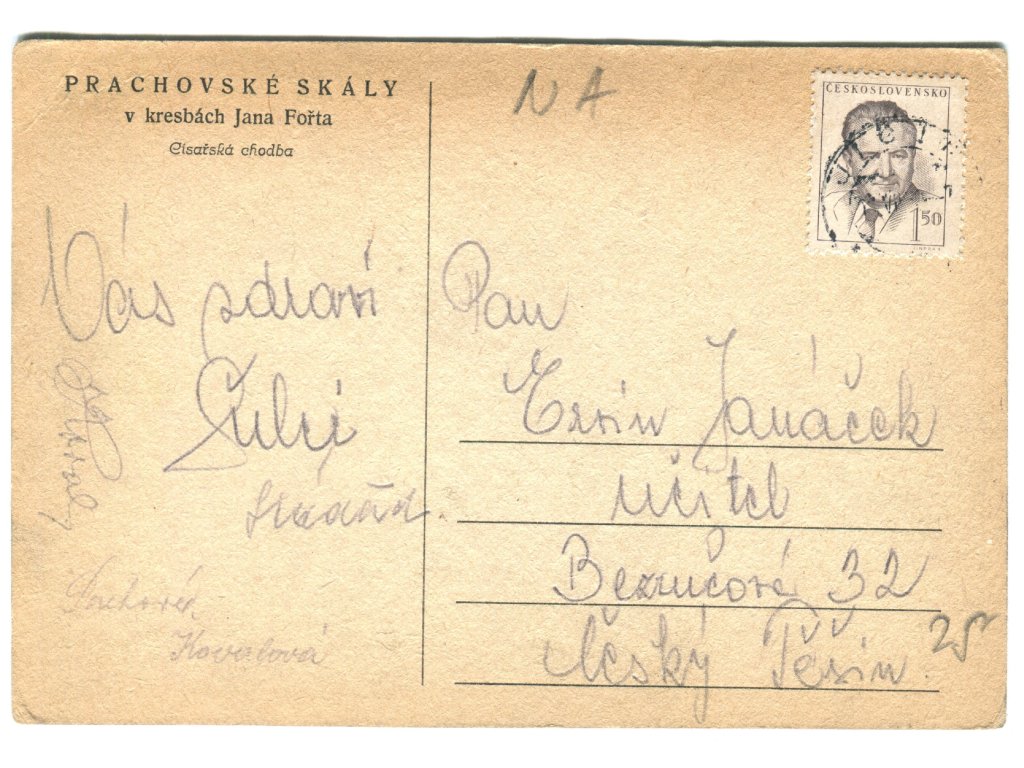 PRACHOVSKÉ SKÁLY
v kresbách Jana Fořta
Císařská chodba
NA
ČESKOSLOVENSKO
JIČÍN
1 50
Vás zdraví
Pan
Ervin Janáček
učitel
Bezručová 32
Český Těšín
25
Kovalová